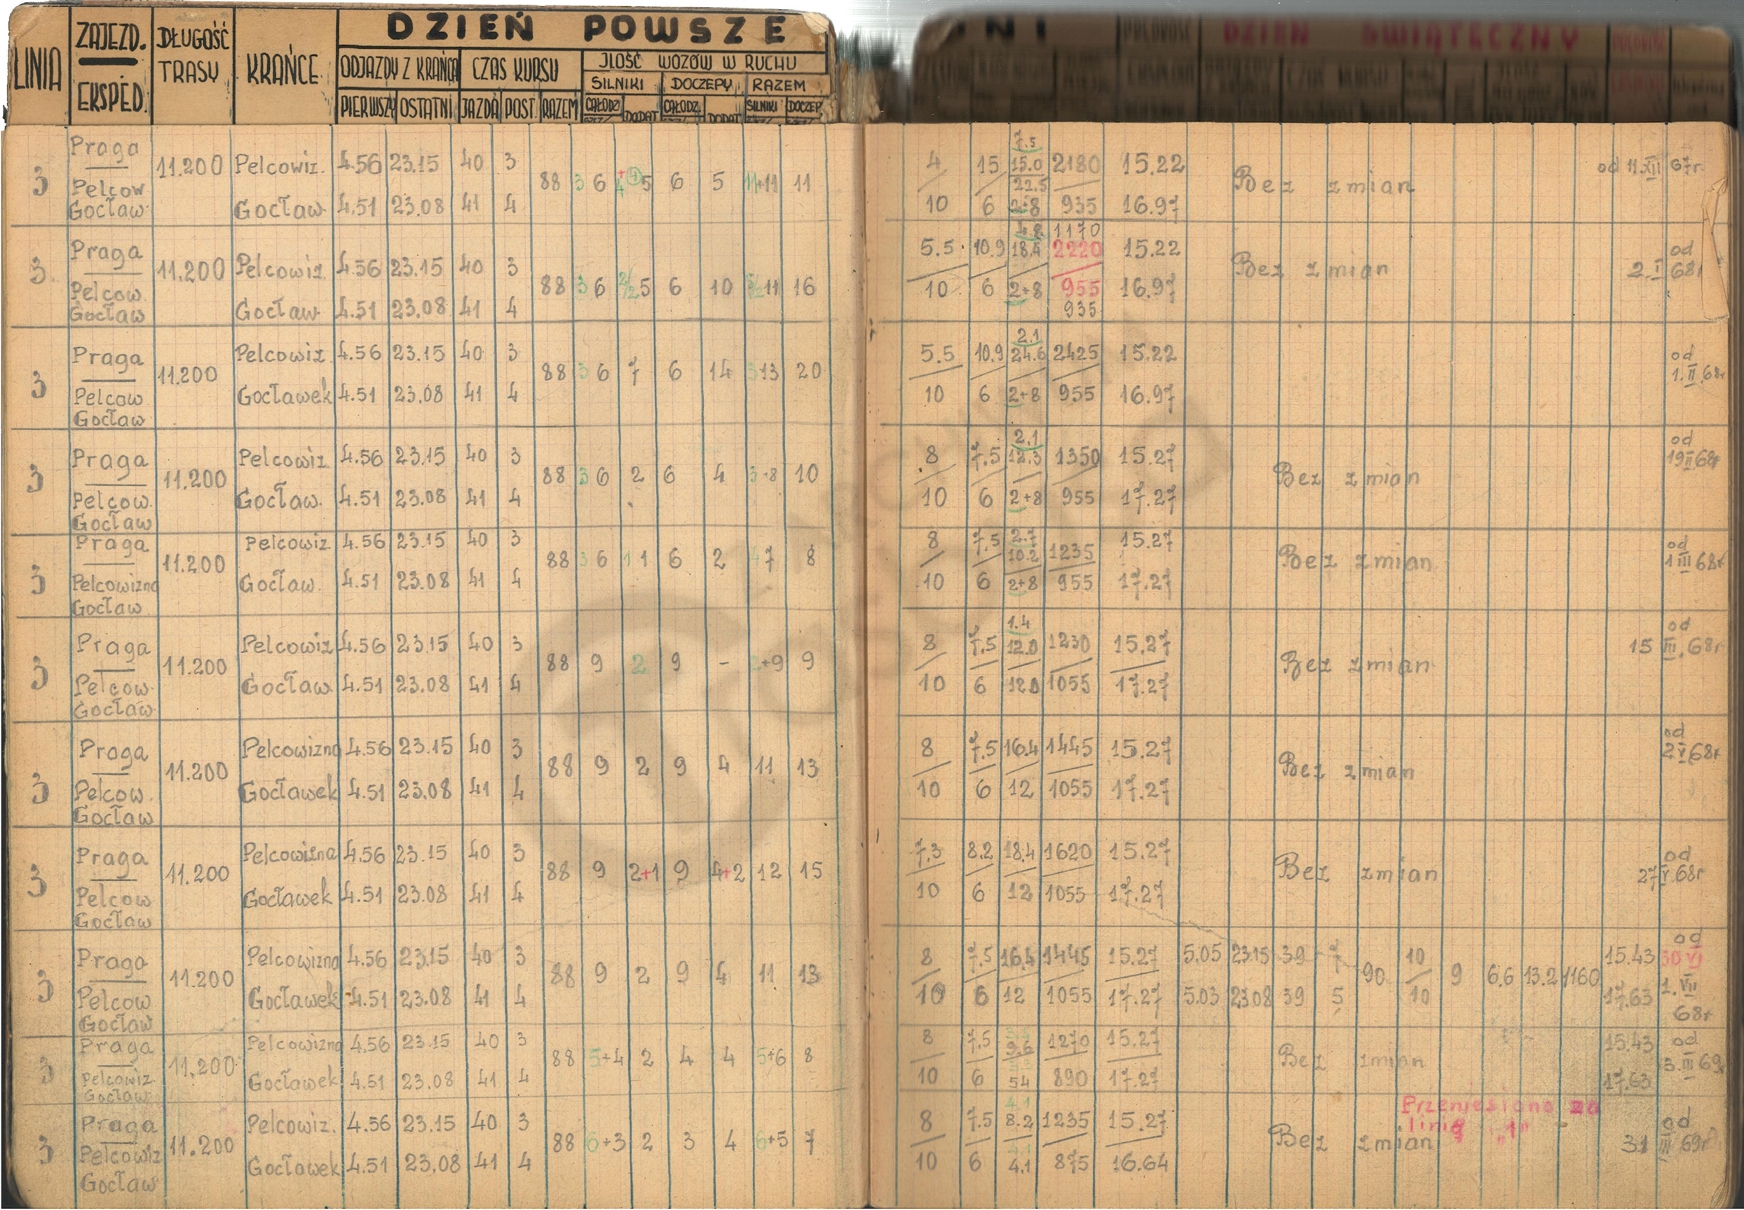 LINIA ZAJEZD. EKSPED. DŁUGOŚĆ TRASY KRAŃCE DZIEŃ POWSZE DZIEŃ ŚWIĄTECZNY
ODJAZDY Z KRAŃCA CZAS KURSU ILOŚĆ WOZÓW W RUCHU
SILNIKI DOCZEPY RAZEM
PIERWSZY OSTATNI JAZDA POST. RAZEM CAŁODZ DODAT CAŁODZ DODAT SILNIKI DOCZEP
3 Praga 11.200 Pelcowiz. 4.56 23.15 40 3 88 3 6 5 6 5 11 4 15 7.5 15.0 22.5 2180 15.22 Bez zmian od 11.XII 67r.
Pelcow Gocław Gocław. 4.51 23.08 41 4 10 6 2+8 935 16.97
3 Praga 11.200 Pelcowiz. 4.56 23.15 40 3 88 3 6 5 6 10 16 5.5 10.9 18.4 1170 2220 15.22 Bez zmian od 2.I 68r
Pelcow. Gocław Gocław. 4.51 23.08 41 4 10 6 2+8 955 16.97
935
3 Praga 11.200 Pelcowiz. 4.56 23.15 40 3 88 3 6 7 6 14 20 5.5 10.9 2.1 24.6 2425 15.22 od 1.II.68r
Pelcow Gocław Gocławek 4.51 23.08 41 4 10 6 2+8 955 16.97
3 Praga 11.200 Pelcowiz 4.56 23.15 40 3 88 3 6 2 6 4 10 8 7.5 2.1 12.3 1350 15.27 Bez zmian od 19 II 68r
Pelcow. Gocław Gocław. 4.51 23.08 41 4 10 6 2+8 955 17.27
3 Praga 11.200 Pelcowiz 4.56 23.15 40 3 88 3 6 1 6 2 7 8 8 7.5 2.7 10.2 1235 15.27 Bez zmian od 1 III 68r
Pelcowizna Gocław Gocław. 4.51 23.08 41 4 10 6 2+8 955 17.27
3 Praga 11.200 Pelcowiz 4.56 23.15 40 3 88 9 2 9 - 2+9 9 8 7.5 1.4 12.0 1230 15.27 Bez zmian od 15 III.68r
Pelcow. Gocław. Gocław 4.51 23.08 41 4 10 6 1055 17.27
3 Praga 11.200 Pelcowizna 4.56 23.15 40 3 88 9 2 9 4 11 13 8 7.5 16.4 1445 15.27 Bez zmian od 2 V 68r
Pelcow. Gocław Gocławek 4.51 23.08 41 4 10 6 12 1055 17.27
3 Praga 11.200 Pelcowizna 4.56 23.15 40 3 88 9 2+1 9 4+2 12 15 7.3 8.2 18.4 1620 15.27 Bez zmian od 27 V.68r
Pelcow Gocław Gocławek 4.51 23.08 41 4 10 6 12 1055 17.27
3 Praga 11.200 Pelcowizna 4.56 23.15 40 3 88 9 2 9 4 11 13 8 7.5 16.4 1445 15.27 5.05 23.15 39 7 90 10 10 9 6,6 13.2 1160 15.43 od 30 VI
Pelcow Gocław Gocławek 4.51 23.08 41 4 10 6 12 1055 17.27 5.03 23.08 39 5 17.63 1.VII 68r
3 Praga 11.200 Pelcowizna 4.56 23.15 40 3 88 5+4 2 4 4 5+6 8 8 7.5 9.6 1270 15.27 Bez zmian 15.43 od 3.III 69
Pelcowiz. Gocław. Gocławek 4.51 23.08 41 4 10 6 54 890 17.27 17.63
3 Praga 11.200 Pelcowiz. 4.56 23.15 40 3 88 6+3 2 3 4 6+5 7 8 7.5 8.2 1235 15.27 Bez zmian od 31 III 69r
Pelcowiz Gocław Gocławek 4.51 23,08 41 4 10 6 4.1 875 16.64
Przeniesiono za linię „1”